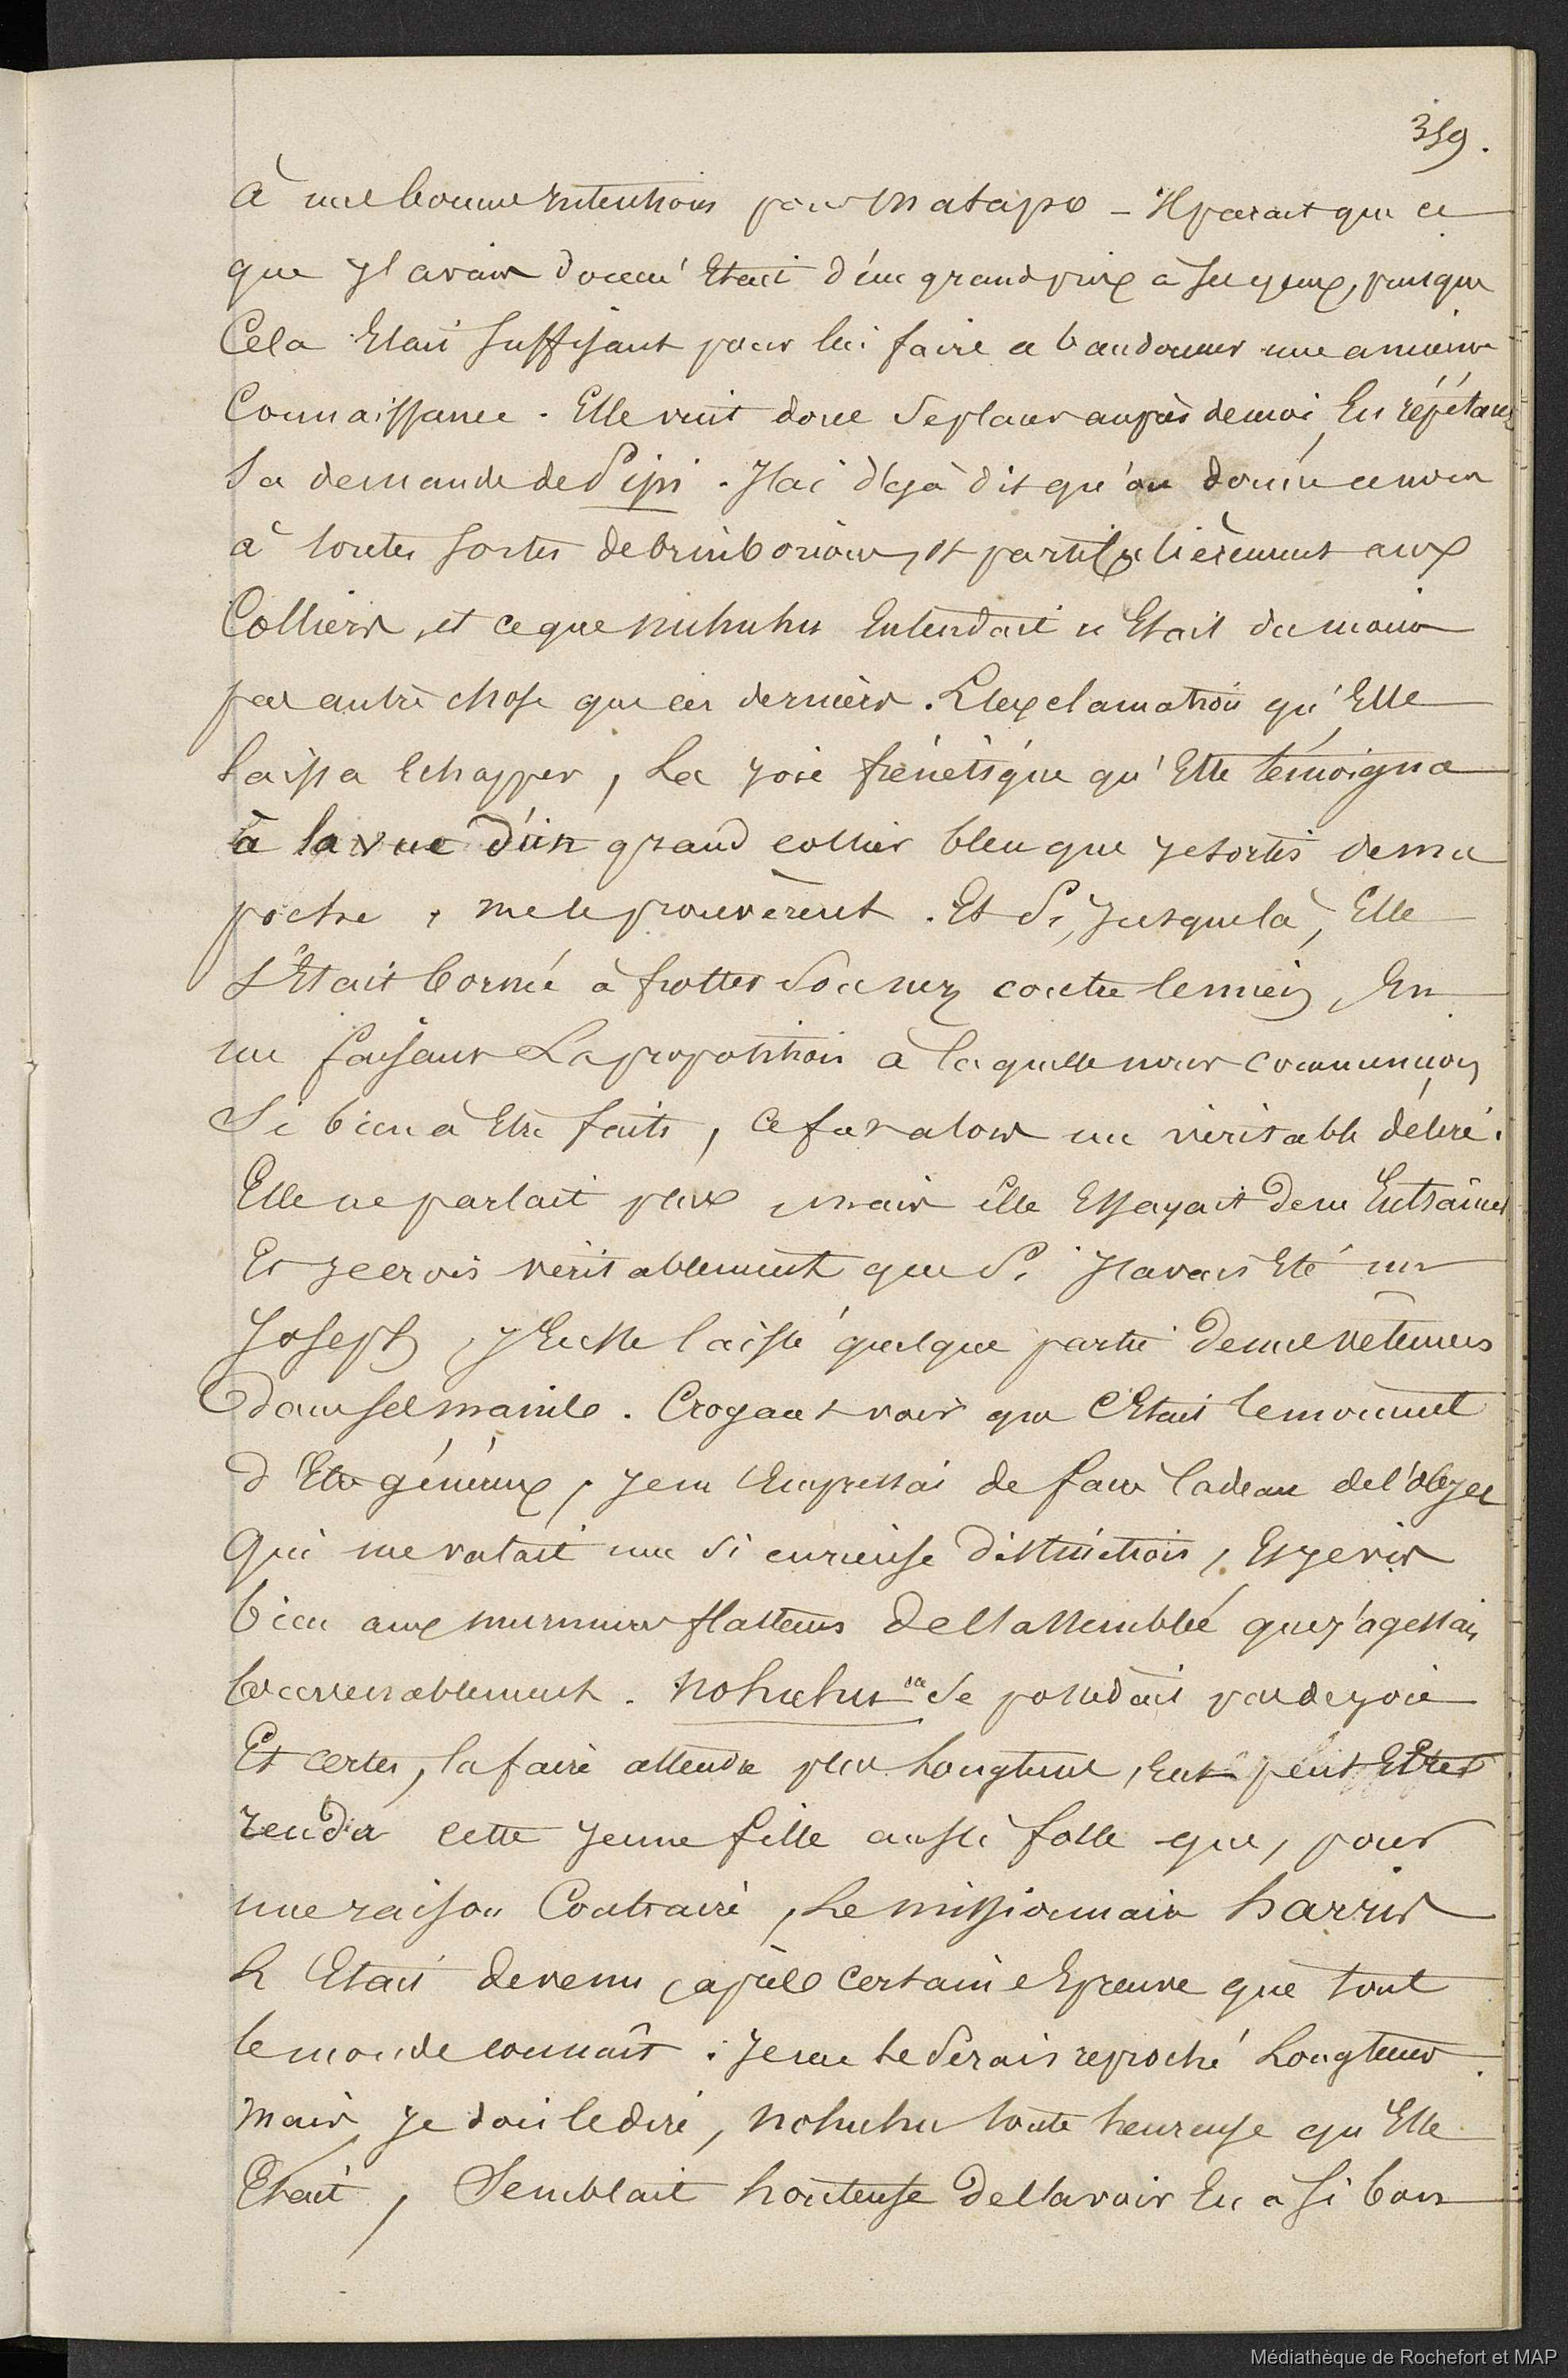 359.
à mes bonnes intentions pour Matapo – Il parait que ce
que j'avais donné Etait d'un grand prix à ses yeux, puisque
Cela Etait suffisant pour lui faire abandonner une ancienne
Connaissance. Elle vint donc se placer auprès de moi En répétant
Sa demande de Pipi. J'ai déjà dit qu'on donne ce nom
à toutes sortes de brimborions, et particulièrement aux
Colliers, et ce que nuhuhu Entendait n'Etait du moins
pas autre chose que ces derniers. L'exclamation qu'Elle
laissa Echapper, La joie frénétique qu'Elle témoigna
à la vue d'un grand collier bleu que je sortis de ma
poche, me le prouvèrent. Et si, jusque là, Elle
s'Etait bornée à frotter son nez contre le mien, En
me faisant La proposition à laquelle nous commençions
Si bien à Etre faits, Ce fut alors un véritable délire.
Elle ne parlait plus, mais elle Essayait de m'Entraîner
Et je crois véritablement que si j'avais Eté un
Joseph, j'Eusse laissé quelque partie de mes vêtemens
dans ses mains. Croyant voir que C'Etait le moment
d'Etre généreux, je m'Empressai de faire Cadeau de l'objet
Qui me valait une si curieuse distinction, Et je vis
bien aux murmures flatteurs de l'assemblée que j'agissais
Convenablement. Nohuhu ne se possédait pas de joie
Et certes, la faire attendre plus Longtems, Eut peut Etre
rendu cette jeune fille aussi folle que, pour
une raison Contraire, Le missionnaire harris
L'Etait devenu, après certaine Epreuve que tout
le monde connaît. Je me le serais reproché Longtems.
Mais, je dois le dire, nohuhu toute heureuse qu'Elle
Etait, Semblait honteuse de l'avoir Eu à si bon
Médiathèque de Rochefort et MAP